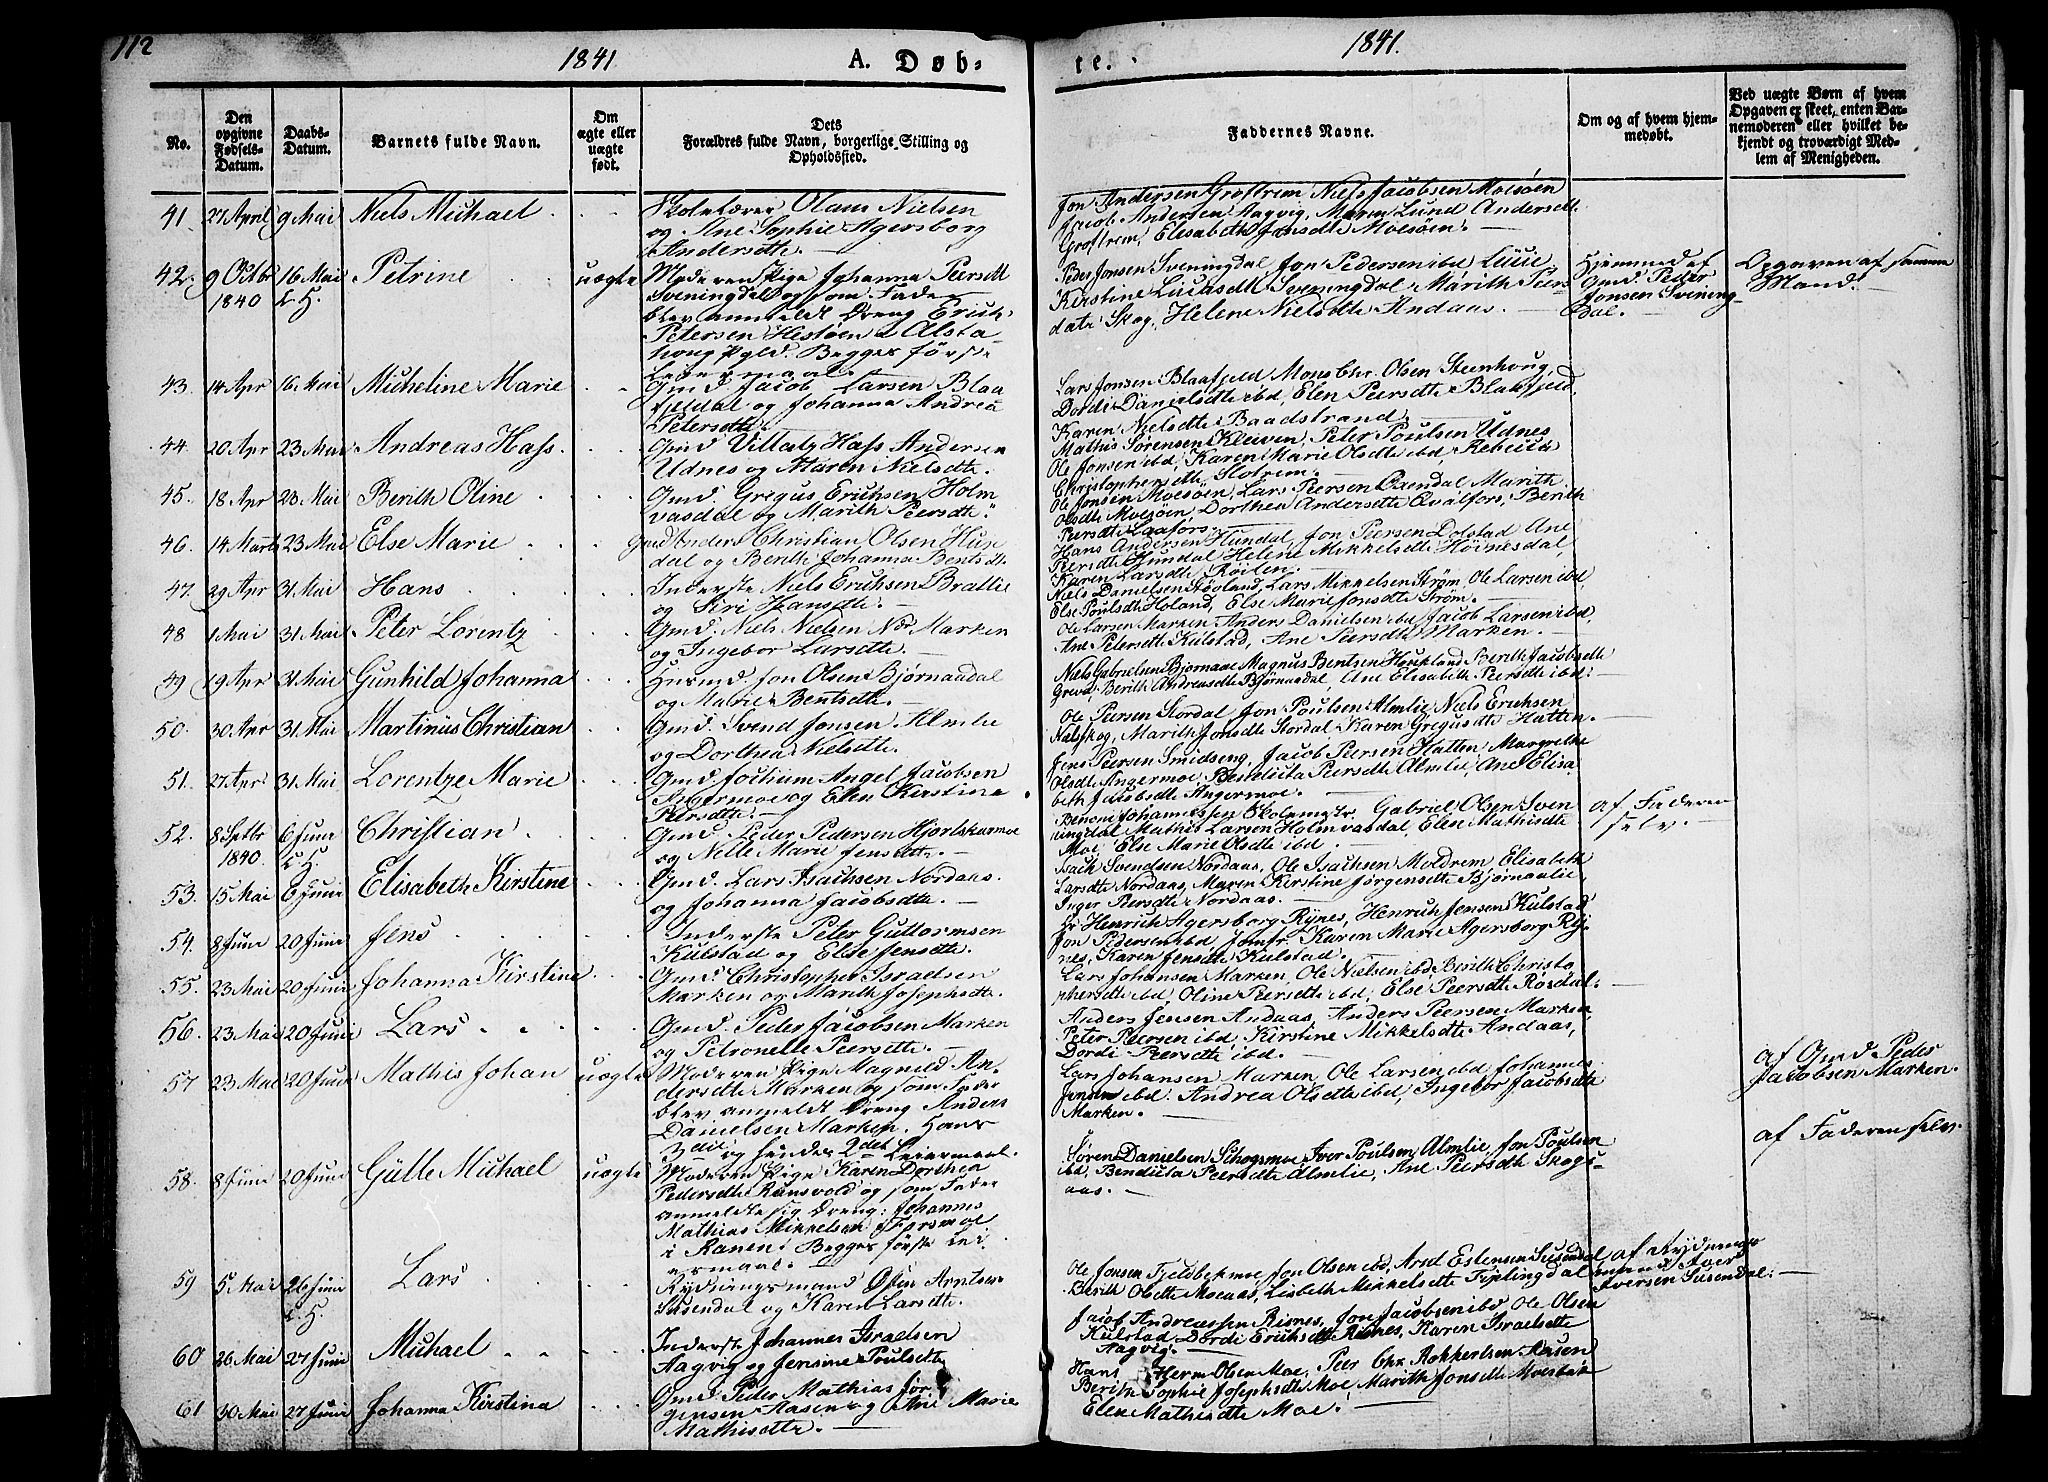 112
1841
A. Døb-
te.
1841.
No.
Den opgivne Fødsels-Datum.
Daabs-Datum.
Barnets fulde Navn.
Om ægte eller uægte født.
Dets Forældres fulde Navn, borgerlige Stilling og Opholdssted.
Faddernes Navne.
Om og af hvem hjem-medøbt.
Ved uægte Børn af hvem Opgaven er skeet, enten Bar-nemoderen eller hvilket be-kjendt og troværdigt Med-lem af Menigheden.
41. 27 April 9 Mai Niels Michael
Skolelærer Olaus Nielsen
og Ane Sophie Agersborg
Andersdtr.
Jon Andersen Groftrem Niels Jacobsen Moesøen
Jacob Andersen Aagvig, Maren Lund Andersdt.
Groftrem, Elisabeth Jonsdtr Moesøen.
42. 9 Octbr 1840 16 Mai L. H. Petrine uægte
Moderen Pige Johanna Peersdtr
Sveningdal og som Fader
blev anmeldt Dreng Erich
Petersen Hestøen i Alsta
houg Pgld. Begges første
Leiermaal.
Peder Jonsen Sveningdal Jon Pedersen ibd Lucie
Kirstine Lucasdtr Sveningdal Marith Peers
datr Skog, Helene Nielsdtr Andaas.
Hjemmed. af
Gmd. Peder
Jonsen Svening
dal.
Opgaven af samme
Mand.
43. 14 Apr 16 Mai Micheline Marie
Gmd. Jacob Larsen Blaa
fjeldal og Johanna Andrea
Petersdtr.
Lars Jonsen Blaafjeld Mons Chr. Olsen Steenhoug,
Dordi Danielsdtr ibd, Elen Peersdtr Blaafjeld,
Karen Nielsdtr Baadstrand.
44. 20 Apr 23 Mai Andreas Hass
Gmd. Villats Hass Andersen
Udnes og Maren Nielsdtr.
Mathis Sørensen Kleiven, Peter Poulsen Udnes
Ole Jonsen ibd, Karen Marie Olsdtr ibd, Rebecca
Christophersdtr Slotrem.
45. 18 Apr 23 Mai Berith Oline
Gmd. Gregus Erichsen Holm
vasdal og Marith Peersdtr.
Ole Jonsen Moesøen, Lars Peersen Marith
Olsdtr Moesøen Dorthea Andersdtr Qvalfors, Berith
Peersdtr Laafors.
46. 14 Marts 23 Mai Else Marie
Gmd Anders Christian Olsen Hun
dal og Berith Johanna Bentsdtr.
Hans Andersen Hundal, Jon Peersen Dolstad Ane
Peersdtr Hundal Helene Mikkelsdtr Høvnesdal,
Karen Larsdtr Røilen.
47. 29 Apr 31 Mai Hans
Inderste Niels Erichsen Brattlie
og Siri Hansdtr.
Niels Danielsen Høgland, Lars Mikkelsen Strøm, Ole Larsen ibd,
Else Poulsdtr Holand, Else Marie Jonsdtr Strøm.
48 1 Mai 31 Mai Peter Lorentz
Gmd. Niels Nielsen Nd. Marken
og Ingebor Larsdtr.
Ole Larsen Marken Anders Danielsen ibd, Jacob Larsen ibd
Ane Petersdtr Kulstad, Ane Peersdtr Marken.
49 19 Apr 31 Mai Gunhild Johanna
Husmd. Jon Olsen Bjørnaadal
og Marie Bentsdtr.
Niels Gabrielsen Bjørnaae Magnus Bentsen Houkland Berith Jacobsdtr
Greva, Berith Andreasdtr Bjørnaadal, Ane Elisabeth Peersdtr ibd.
50. 30 Apr 31 Mai Martinus Christian
Gmd. Svend Jonsen Almlie
og Dorthea Nielsdtr.
Ole Peersen Stordal Jon Poulsen Almlie Niels Erichsen
Halfskog, Marith Jonsdtr Stordal Karen Gregusdtr Hatten.
51. 27 Apr 31 Mai Lorentze Marie
Gmd. Jochum Angel Jacobsen
Angermoe og Elen Kirstine
Peersdtr.
Jens Peersen Smidseng, Jacob Peersen Hatten, Margrethe
Olsdtr Angermoe Bendicta Peersdtr Almlie, Ane Elisa
beth Jacobsdtr Angermoe.
52. 8 Septbr 1840. 6 Juni L. H. Christian
Gmd. Peder Pedersen Hjortskarmoe
og Nelle Marie Jensdtr.
Benoni Johannessen Skolemestr. Gabriel Olsen Sven
ningdal Mathis Larsen Holmvasdal, Elen Mathisdtr
Moe, Else Marie Olsdtr ibd.
af Faderen
selv.
53. 15 Mai 6 Juni Elisabeth Kirstine
Gmd. Lars Isachsen Nordaas.
og Johanna Jacobsdtr.
Isach Svendsen Nordaas, Ole Isachsen Moldrem Elisabeth
Larsdtr Nordaas, Maren Kirstine Jørgensdtr Bjørnaalie,
Inger Peersdtr Nordaas.
54. 8 Juni 20 Juni Jens
Inderste Peter Guttormsen
Kulstad og Else Jensdtr.
Hr Henrich Agersborg Rynes, Henrich Jensen Kulstad
Jon Pedersen ibd. Jomfr. Karen Marie Agersborg Ry-
nes, Karen Jensdtr Kulstad.
55. 23 Mai 20 Juni Johanna Kirstine
Gmd. Christopher Israelsen
Marken og Marith Josephsdtr.
Lars Johansen Marken, Ole Nielsen ibd Berith Christo
phersdtr ibd, Oline Peersdtr ibd, Else Peersdtr Røsdal.
56. 23 Mai 20 Juni Lars
Gmd. Peder Jacobsen Marken
og Petronelle Peersdtr.
Anders Jensen Andaas, Anders Peersen Marken
Peter Peersen ibd, Kirstine Mikkelsdtr Andaas,
Dordi Peersdtr ibd.
57 23 Mai 20 Juni Mathis Johan uægte
Moderen Pige Magnild An-
dersdtr Marken og som Fader
blev anmeldt Dreng Anders
Danielsen Marken. Hans
og hendes 2det Leiermaal.
Lars Johansen Marken, Ole Larsen ibd Johannes
Jensen ibd. Andrea Olsdtr ibd, Ingebor Jacobsdtr
Marken.
af Gmd Peder
Jacobsen Marken.
58. 8 Juni 20 Juni Gulle Michael uægte
Moderen Pige Karen Dorthea
Pedersdtr Ransvold og som Fader
anmeldte sig Dreng: Johannes
Mathias Mikkelsen Forsmoe
i Ranen. Begges første Lei
ermaal.
Søren Danielsen Skogsmoe Iver Poulsen Almlie, Jon Poulsen
ibd, Bendicta Peersdtr Almlie, Ane Peersdtr Skogs-
aas.
af Faderen selv.
59 5 Mai 26 Juni L. H. Lars
Rydningsmand Østen Arntsen
Susendal og Karen Larsdtr.
Ole Jonsen Fjeldbekmoe Jon Olsen ibd, Arnt Estensen Susendal
Berith Olsdtr Moeaas, Lisbeth Mikkelsdtr Tiplingdal
af Rydnings
mand Iver
Iversen Susendal.
60 26 Mai 27 Juni Michael
Inderst Johannes Israelsen
Aagvig og Jensine Poulsdtr
Jacob Andreassen Risnes, Jon Jacobsen ibd Ole Olsen
Kulstad Dordi Erichsdtr Risnes, Karen Israelsdtr
Aagvig.
61 30 Mai 27 Juni Johanna Kirstina
Gmd. Peder Mathias Jør
gensen Aasen og Ane Marie
Mathisdtr.
Hans Herm Olsen Moe, Peer Chr. Rokkertsen Aasen
Berith Sophie Josephsdtr Moe, Marith Jonsdtr
Elen Mathisdtr Moe.